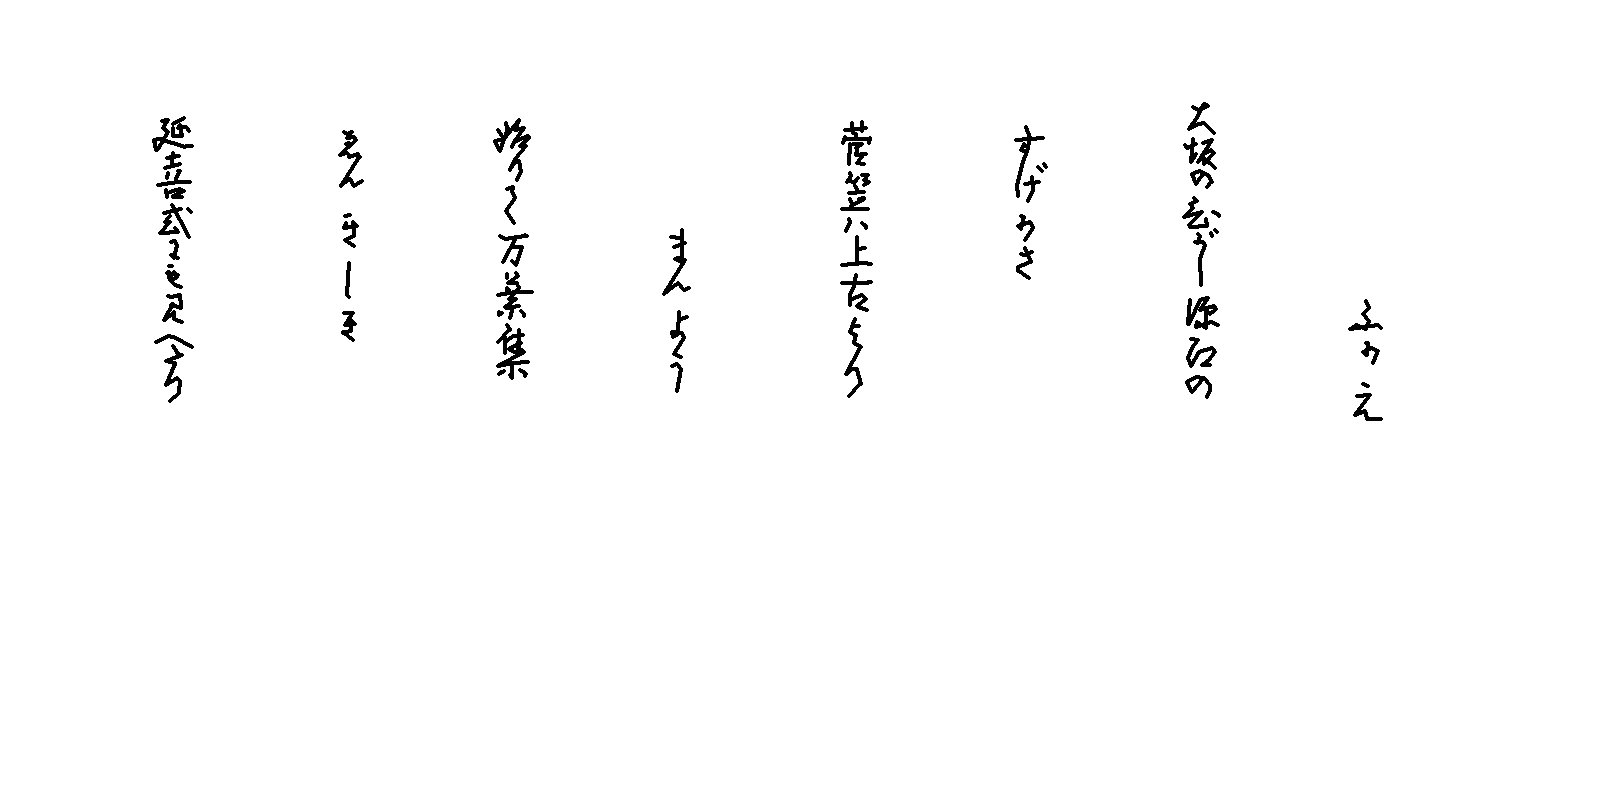 ふかえ
大坂のひがし深江の
すげかさ
菅笠ハ上古より
まんよう
始りて万葉集
ゑんきしき
延喜式にも見へたり